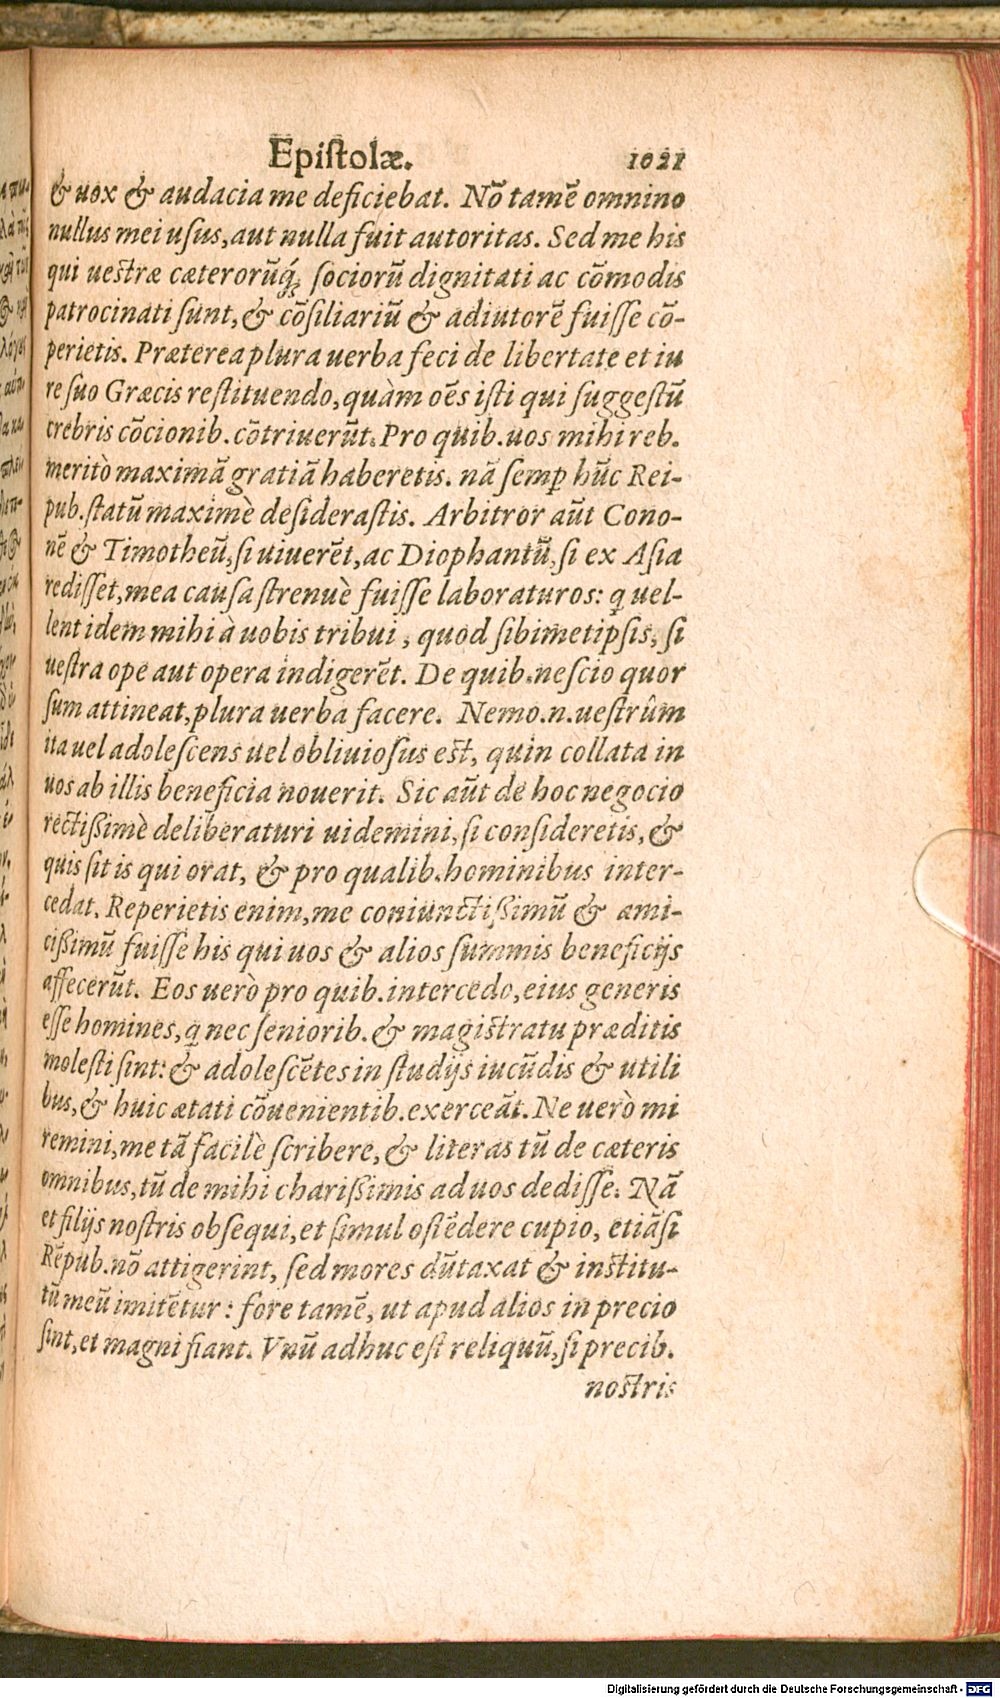 Epistolæ. 1021
& uox & audacia me deficiebat. Nō tamē omnino
nullus mei usus, aut nulla fuit autoritas. Sed me his
qui uestræ cæterorūq́; sociorū dignitati ac cōmodis
patrocinati sunt, & cōsiliariū & adiutorē fuisse cō-
perietis. Præterea plura uerba feci de libertate et iu
re suo Græcis restituendo, quàm oēs isti qui suggestū
crebris cōcionib. cōtriuerūt. Pro quib. uos mihi reb.
meritò maximā gratiā haberetis. nā semꝑ hūc Rei-
pub. statū maximè desiderastis. Arbitror aūt Cono-
nē & Timotheū, si uiuerēt, ac Diophantū, si ex Asia
redisset, mea causa strenuè fuisse laboraturos: q̃ uel-
lent idem mihi à uobis tribui, quod sibimetipsis, si
uestra ope aut opera indigerēt. De quib. nescio quor
sum attineat, plura uerba facere. Nemo .n. uestrûm
ita uel adolescens uel obliuiosus est, quin collata in
uos ab illis beneficia nouerit. Sic aūt de hoc negocio
rectißimè deliberaturi uidemini, si consideretis, &
quis sit is qui orat, & pro qualib. hominibus inter-
cedat. Reperietis enim, me coniunctißimū & ami-
cißimū fuisse his qui uos & alios summis beneficijs
affecerūt. Eos uerò pro quib. intercedo, eius generis
esse homines, q̃ nec seniorib. & magistratu præditis
molesti sint: & adolescētes in studijs iucūdis & utili
bus, & huic ætati cōuenientib. exerceāt. Ne uerò mi
remini, me tā facilè scribere, & literas tū de cæteris
omnibus, tū de mihi charißimis ad uos dedisse. Nā
et filijs nostris obsequi, et simul ostēdere cupio, etiāsi
Rēpub. nō attigerint, sed mores dūtaxat & institu-
tū meū imitētur: fore tamē, ut apud alios in precio
sint, et magni fiant. Vnū adhuc est reliquū, si precib.
nostris
Digitalisierung gefördert durch die Deutsche Forschungsgemeinschaft - DFG